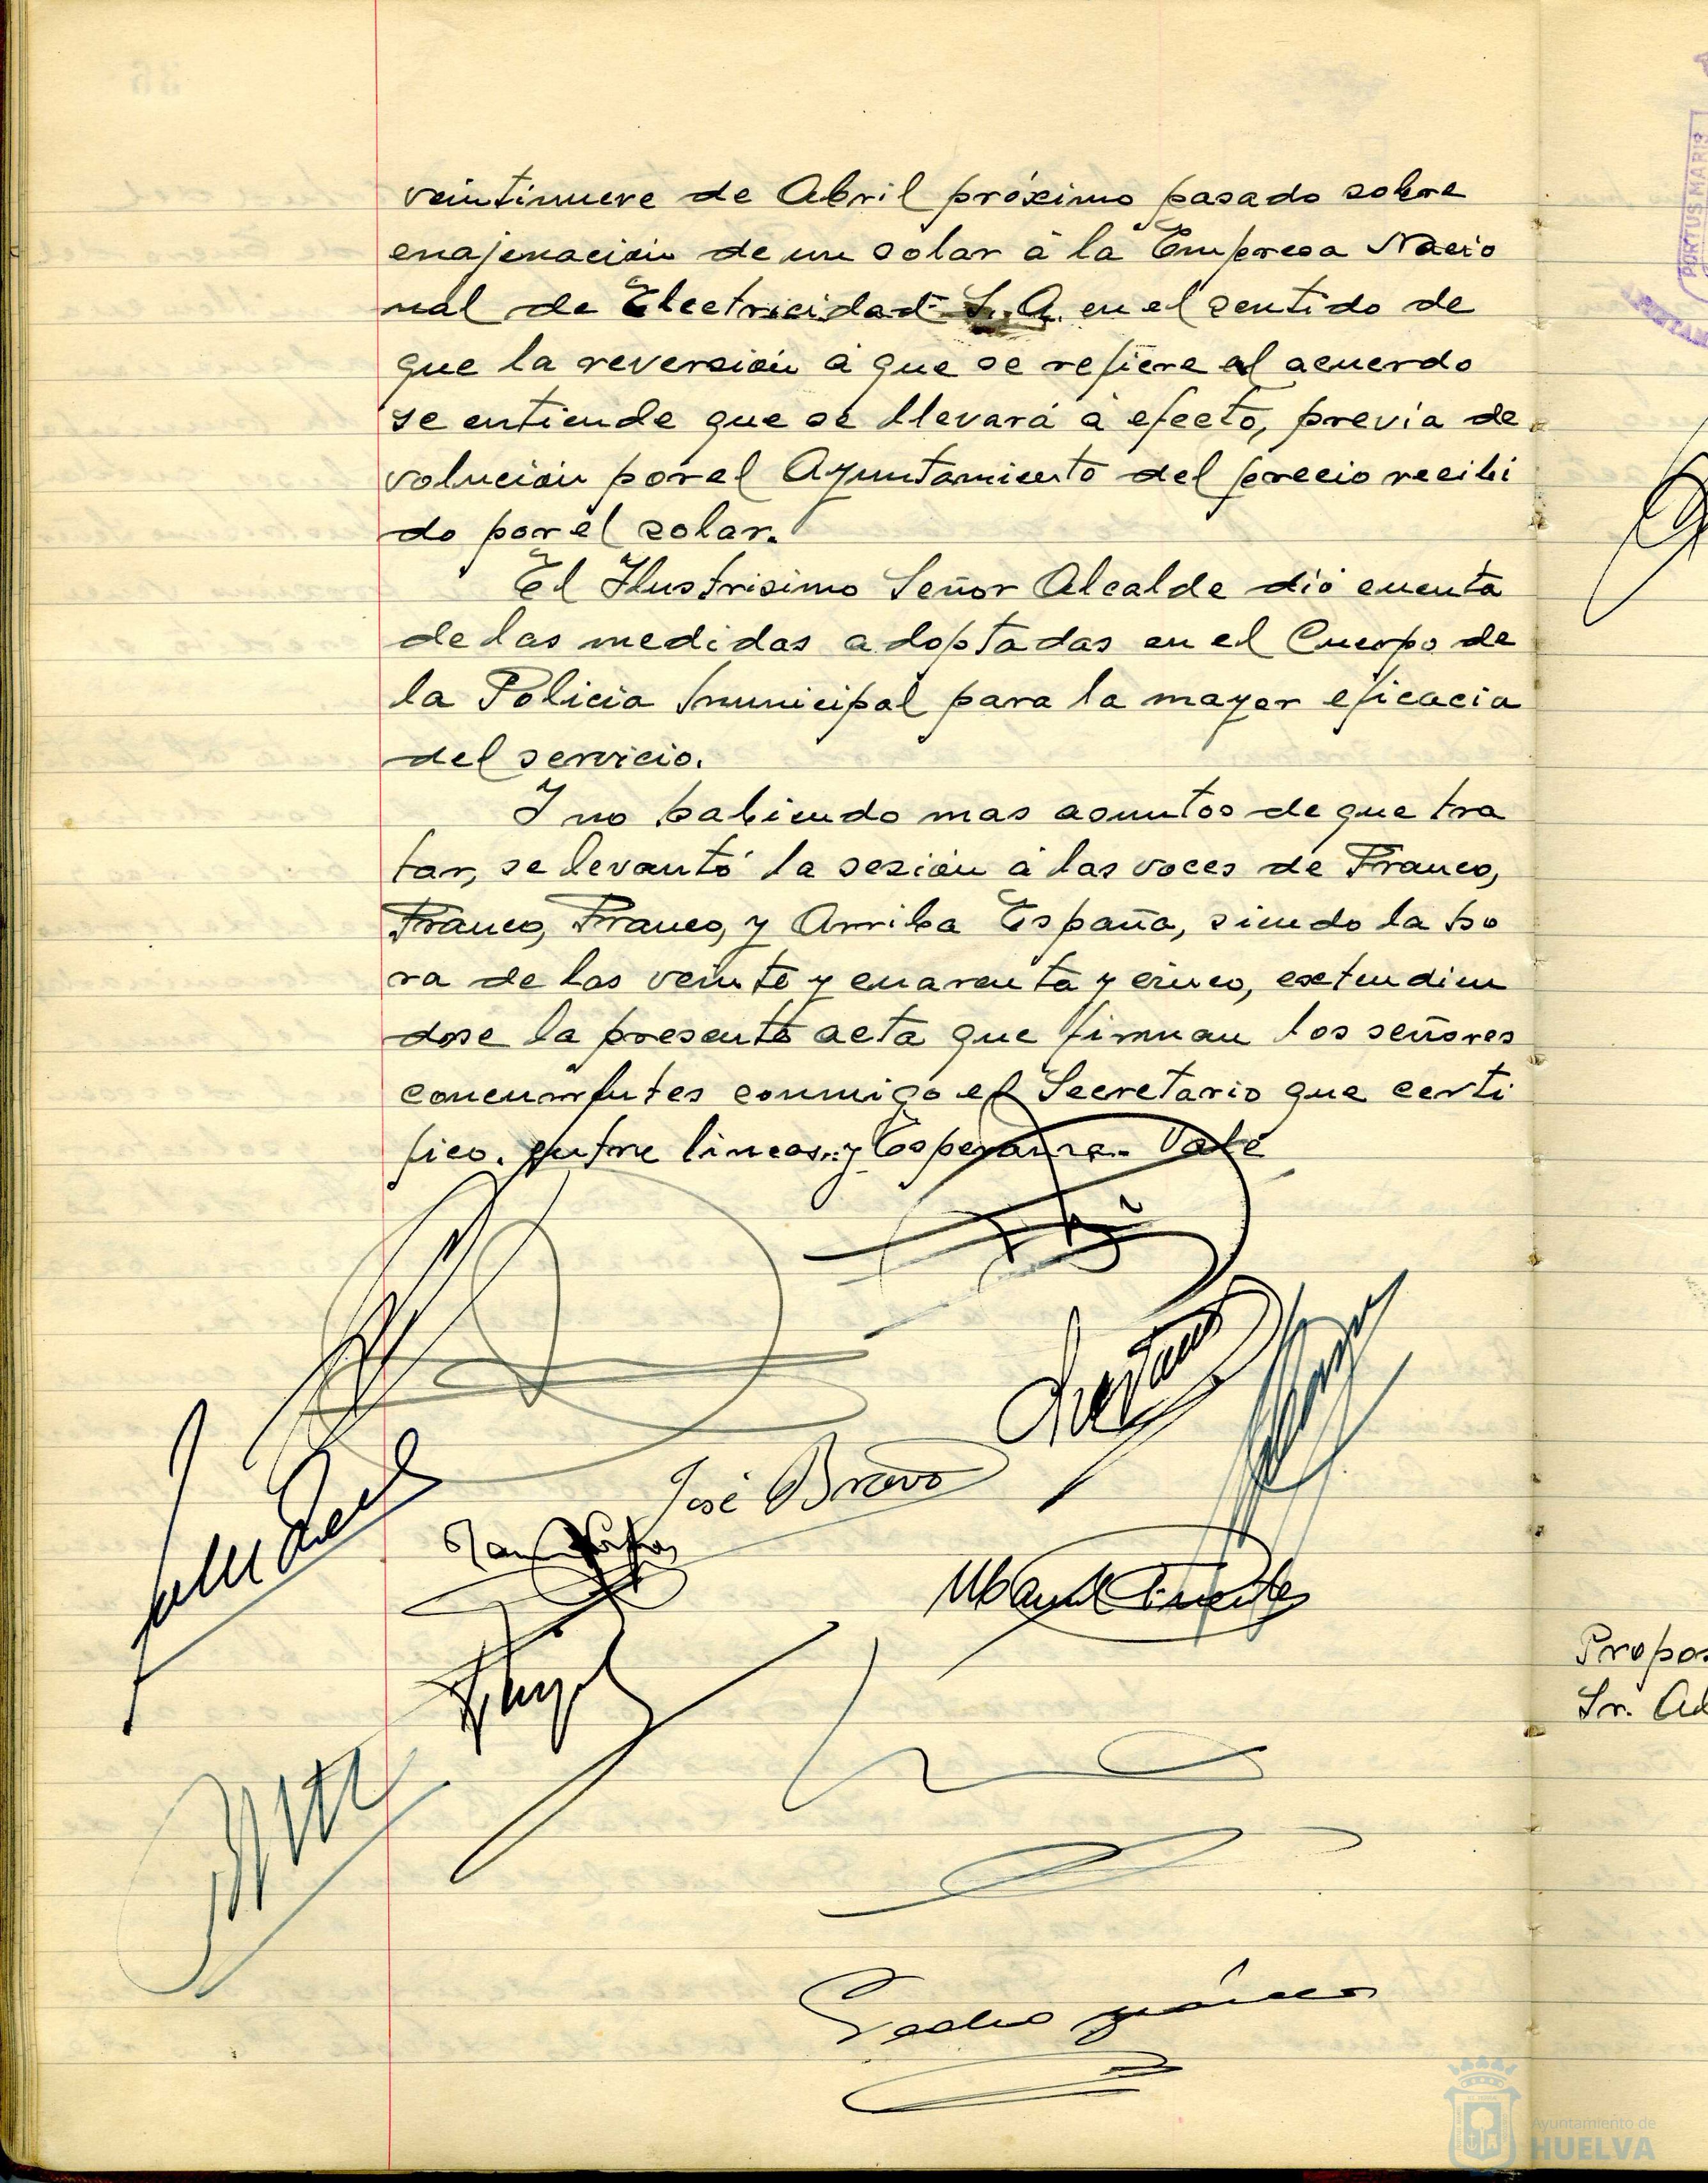 veintinueve de Abril próximo pasado sobre
enajenación de un solar á la Empresa Nacio
nal de Electricidad S. A. en el sentido de
que la reversión á que se refiere el acuerdo
se entiende que se llevará á efecto, previa de
volución por el Ayuntamiento del precio recibi
do por el solar.
El Ilustrisimo Señor Alcalde dió cuenta
de las medidas adoptadas en el Cuerpo de
la Policia Municipal para la mayor eficacia
del servicio.
Y no habiendo mas asuntos de que tra
tar, se levantó la sesión á las voces de Franco,
Franco, Franco, y Arriba España, siendo la ho
ra de las veinte y cuarenta y cinco, extendien
dose la presente acta que firman los señores
concurrentes conmigo el Secretario que certi
fico. entre lineas.-y Esperanza.- Vale
José Bravo
Manuel Fuentes
Pedro
Propos
Sr. Ad
PORTUS MARIS
Ayuntamiento de
HUELVA